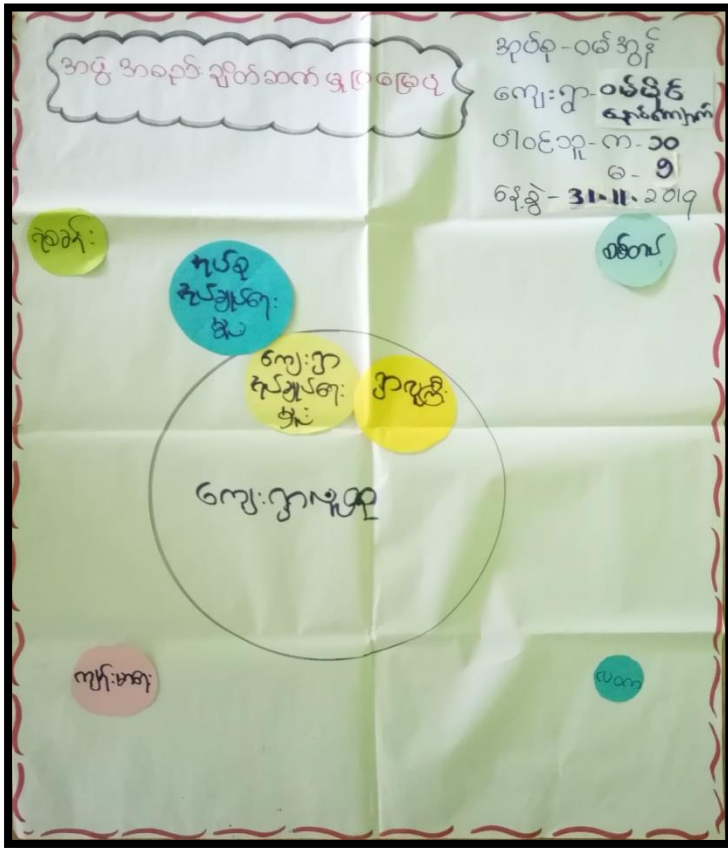 အဖွဲ့ အစည်း ချိတ်ဆက် မှုပြမြေပုံ
အုပ်စု - ဝမ်အွန်
ကျေးရွာ - ဝမ်မိုင်
နောင်တောက်
ပါဝင်သူ - က - ၁၀
မ - ၅
နေ့စွဲ - 31.11.2019
ရဲစခန်း
စစ်တပ်
အုပ်စု
အုပ်ချုပ်ရေး
မှူး
ကျေးရွာ
အုပ်ချုပ်ရေး
မှူး
ရွာလူကြီး
ကျေးရွာလူထု
ကျန်းမာရေး
လဝက